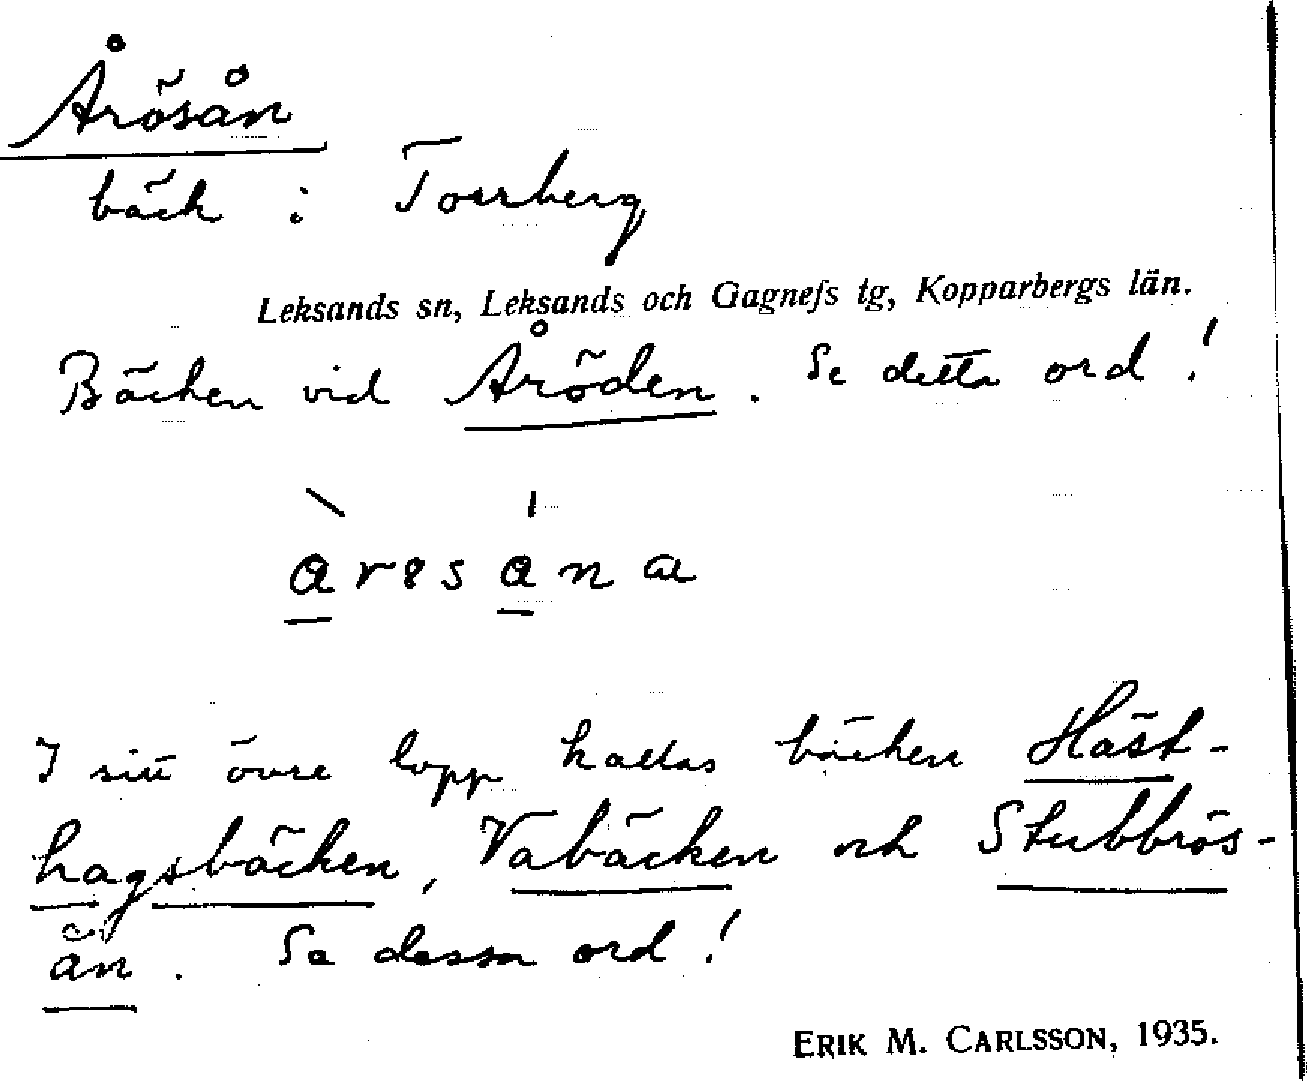 Årösån
bäck i Torrberg
Leksands sn, Leksands och Gagnefs tg, Kopparbergs län.
Bäcken vid Åröden. Se detta ord!
I sitt övre lopp kallas bäcken Häst-
hagsbäcken, Vabäcken och Stubbrös-
ån. Se dessa ord!
ERIK M. CARLSSON, 1935.